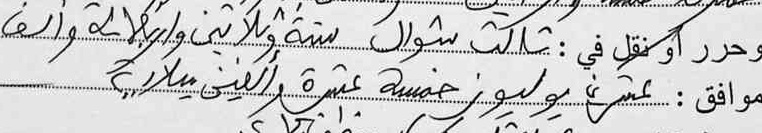 وحرر أو نقل في : تالت شوال ستة وثلاثين واربعمائة وألف
موافق : عشرين يوليوز خمسة عشرة وألفين ميلادية